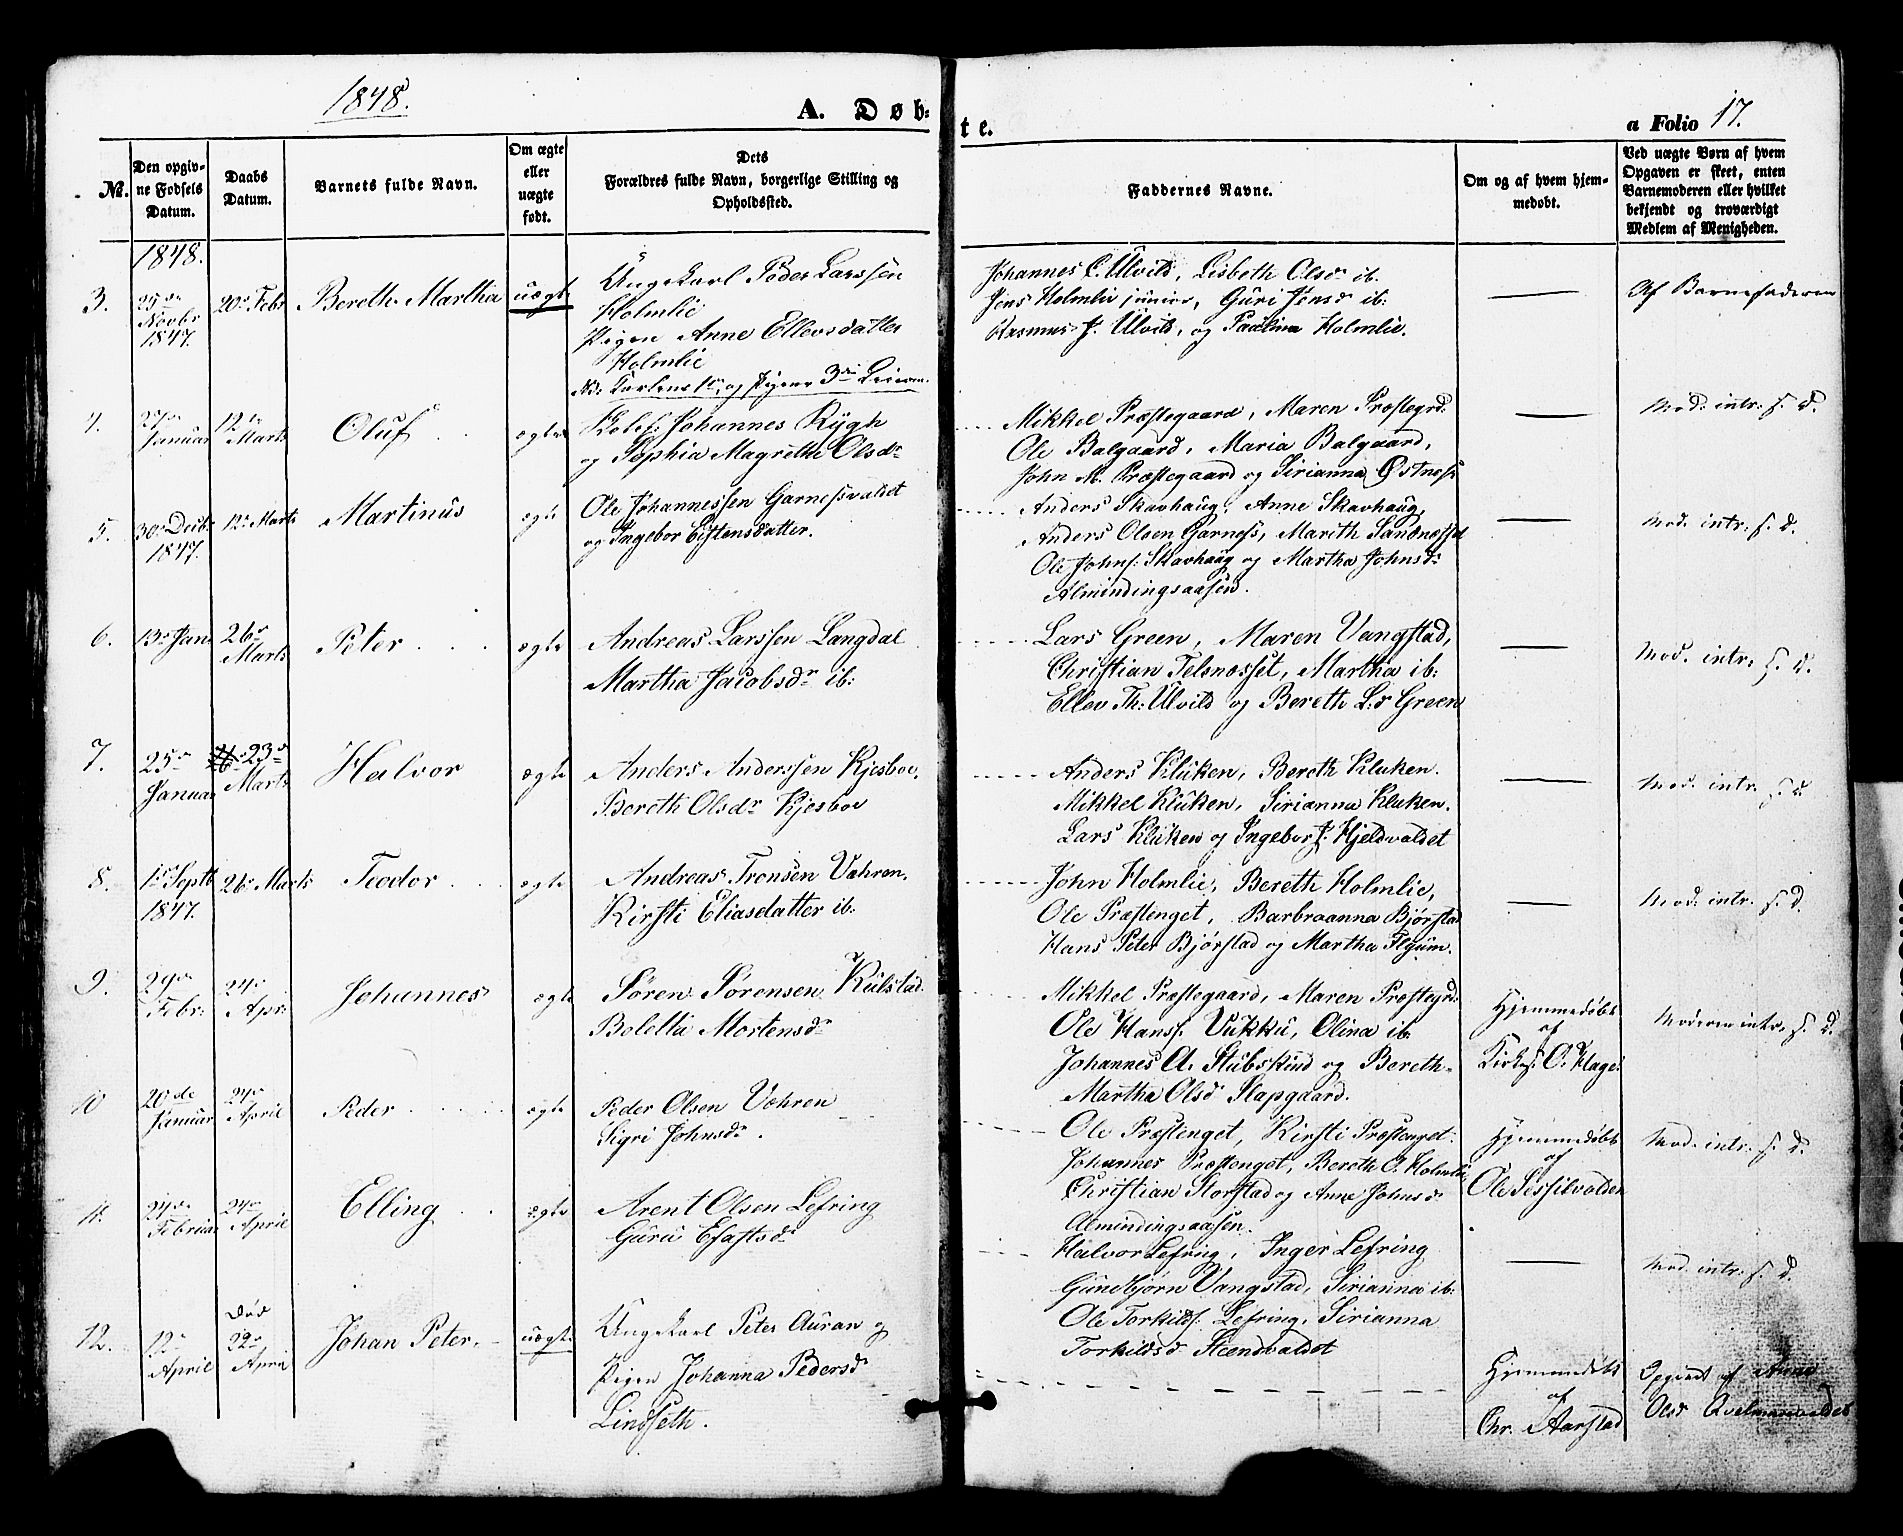 1848.
A. Døb=
te.
a Folio 17.
No.
Den opgiv-
ne Fødsels
Datum.
Daabs
Datum.
Barnets fulde Navn.
Om ægte
eller
uægte
født.
Dets
Forældres fulde Navn, borgerlige Stilling og
Opholdssted.
Faddernes Navne.
Om og af hvem hjem-
medøbt.
Ved uægte Børn af hvem
Opgaven er skeet, enten
Barnemoderen eller hvilket
bekjendt og troværdigt
Medlem af Menigheden.
1848.
3.
25de
Novbr
1847.
20de Febr
Bereth Martha
uægte
Ungekarl Peder Larssen
Holmlie
Pigen Anne Ellevsdatter
Holmlie
NB: Karlens 1ste og Pigens 3die Leierm.
Johannes E. Ulvild, Lisbeth Olsdr ib.
Jens Holmlie junior, Guri Jensdr ib:
Rasmus J. Ulvild, og Paulina Holmlie.
Af Barnefaderen
4.
27de
Januar
12te
Marts
Oluf
ægte
Johannes Rygh
og Sophia Magrethe Olsdr
Mikkel Præstegaard, Maren Præstegrd:
Ole Balgaard, Maria Balgaard,
John M. Præstegaard og Sirianna Østnes
Mod: intr: f. d.
5.
30te Decbr
1847.
12te Marts
Martinus
ægte
Ole Johannessen Garnesvaldet
og Ingebor Eistensdatter.
Anders Skavhaug, Anne Skavhaug,
Anders Olsen Garnes, Marith Sandnesset
Ole Johns: Skavhaug og Martha Johnsdr
Almindingsaasen.
Mod. intr: f. d.
6.
13de Jan
26de
Marts
Peter
ægte
Andreas Larssen Langdal
Martha Jacobsdr ib:
Lars Green, Maren Vangstad,
Christian Telsnesset, Martha ib:
Ellev Th: Ulvild og Bereth L:dr Green
Mod. intr: f. d.
7.
25de
Januar
23de
Marts
Halvor
ægte
Anders Anderssen Kjesboe,
Bereth Olsdr Kjesboe
Anders Kluken, Bereth Kluken.
Mikkel Kluken, Sirianna Kluken.
Lars Kluken og Ingebor J. Hjeldvaldet
Mod. intr. f. d.
8.
1ste Septb
1847.
26de Marts
Teodor
ægte
Andreas Tronsen Vohren,
Kirsti Eliasdatter ib:
John Holmlie, Bereth Holmlie,
Ole Præstenget, Barbroanna Bjørstad
Hans Peter Bjørstad og Martha Flyum.
Mod. intr. f. d.
9.
29de
Febr:
24de
Apr:
Johannes
ægte
Søren Sørensen Kulstad.
Boletta Mortensdr
Mikkel Præstegaard, Maren Præstegrd:
Ole Hans: Vukku, Olina ib:
Johannes A. Stubskind og Bereth-
Martha Olsdr Slapgaard.
Hjemmedøbt
af
Kirkes: O. Hage:
Moderen intr. f. d.
10
20de
Januar
24de
April
Peder
ægte
Peder Olsen Vohren
Sigri Johnsdr.
Ole Præstenget, Kirsti Præstenget.
Johannes Præstenget, Bereth O. Holmlie,
Christian Storstad og Anne Johnsdr
Almindingsaasen.
Hjemmedøbt
af
Ole Sessilvolden
Mod. intr. f. d.
11.
24de
Februar
24de
April
Elling
ægte
Arent Olsen Lefring
Guru Esastsdr
Halvor Lefring, Inger Lefring
Gundbjørn Vangstad, Sirianna ib:
Ole Torkilds: Lefring, Sirianna
Torkildsdr Steendvaldet
Mod. intr: f. d.
12.
12te
April
Død
22de
April
Johan Peter
uægte
Ungekarl Peter Auran og
Pigen Johanna Pedersdr
Lindseth.
Hjemmedøbt
af
Chr. Aarstad
Opgivet af Anne
Olsdr